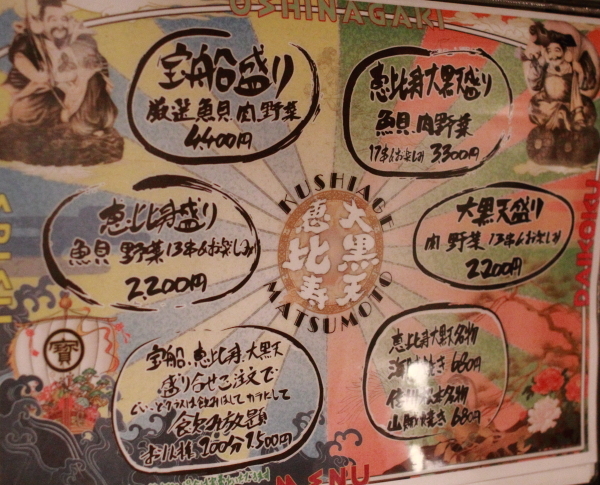 OSHINAGAKI
宝船盛り
厳選魚貝、肉、野菜
4,400円
恵比寿大黒天盛り
魚貝、肉、野菜
17本&お楽しみ 3300円
恵比寿盛り
魚貝 野菜13本&お楽しみ
2,200円
KUSHIAGE
恵比寿
大黒天
MATSUMOTO
大黒天盛り
肉 野菜 13本&お楽しみ
2200円
DAIKOKU
寶
宝船、恵比寿、大黒天
盛り合せご注文で
飲み放題
お1人様 100分 1,500円
恵比寿大黒天名物
焼き 680円
名物
山 焼き 680円
MENU